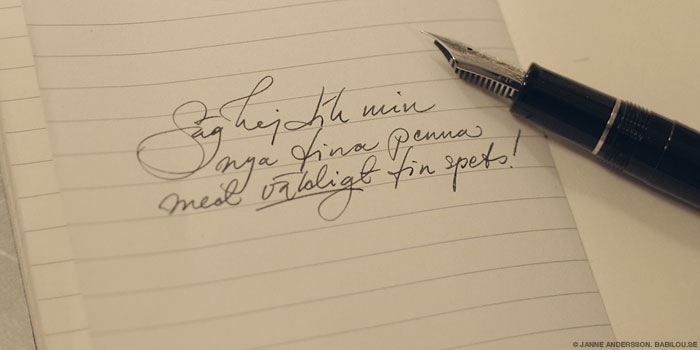 Säg hej till min
nya fina penna
med väldigt fin spets!
© JANNE ANDERSSON. BABILOU.SE